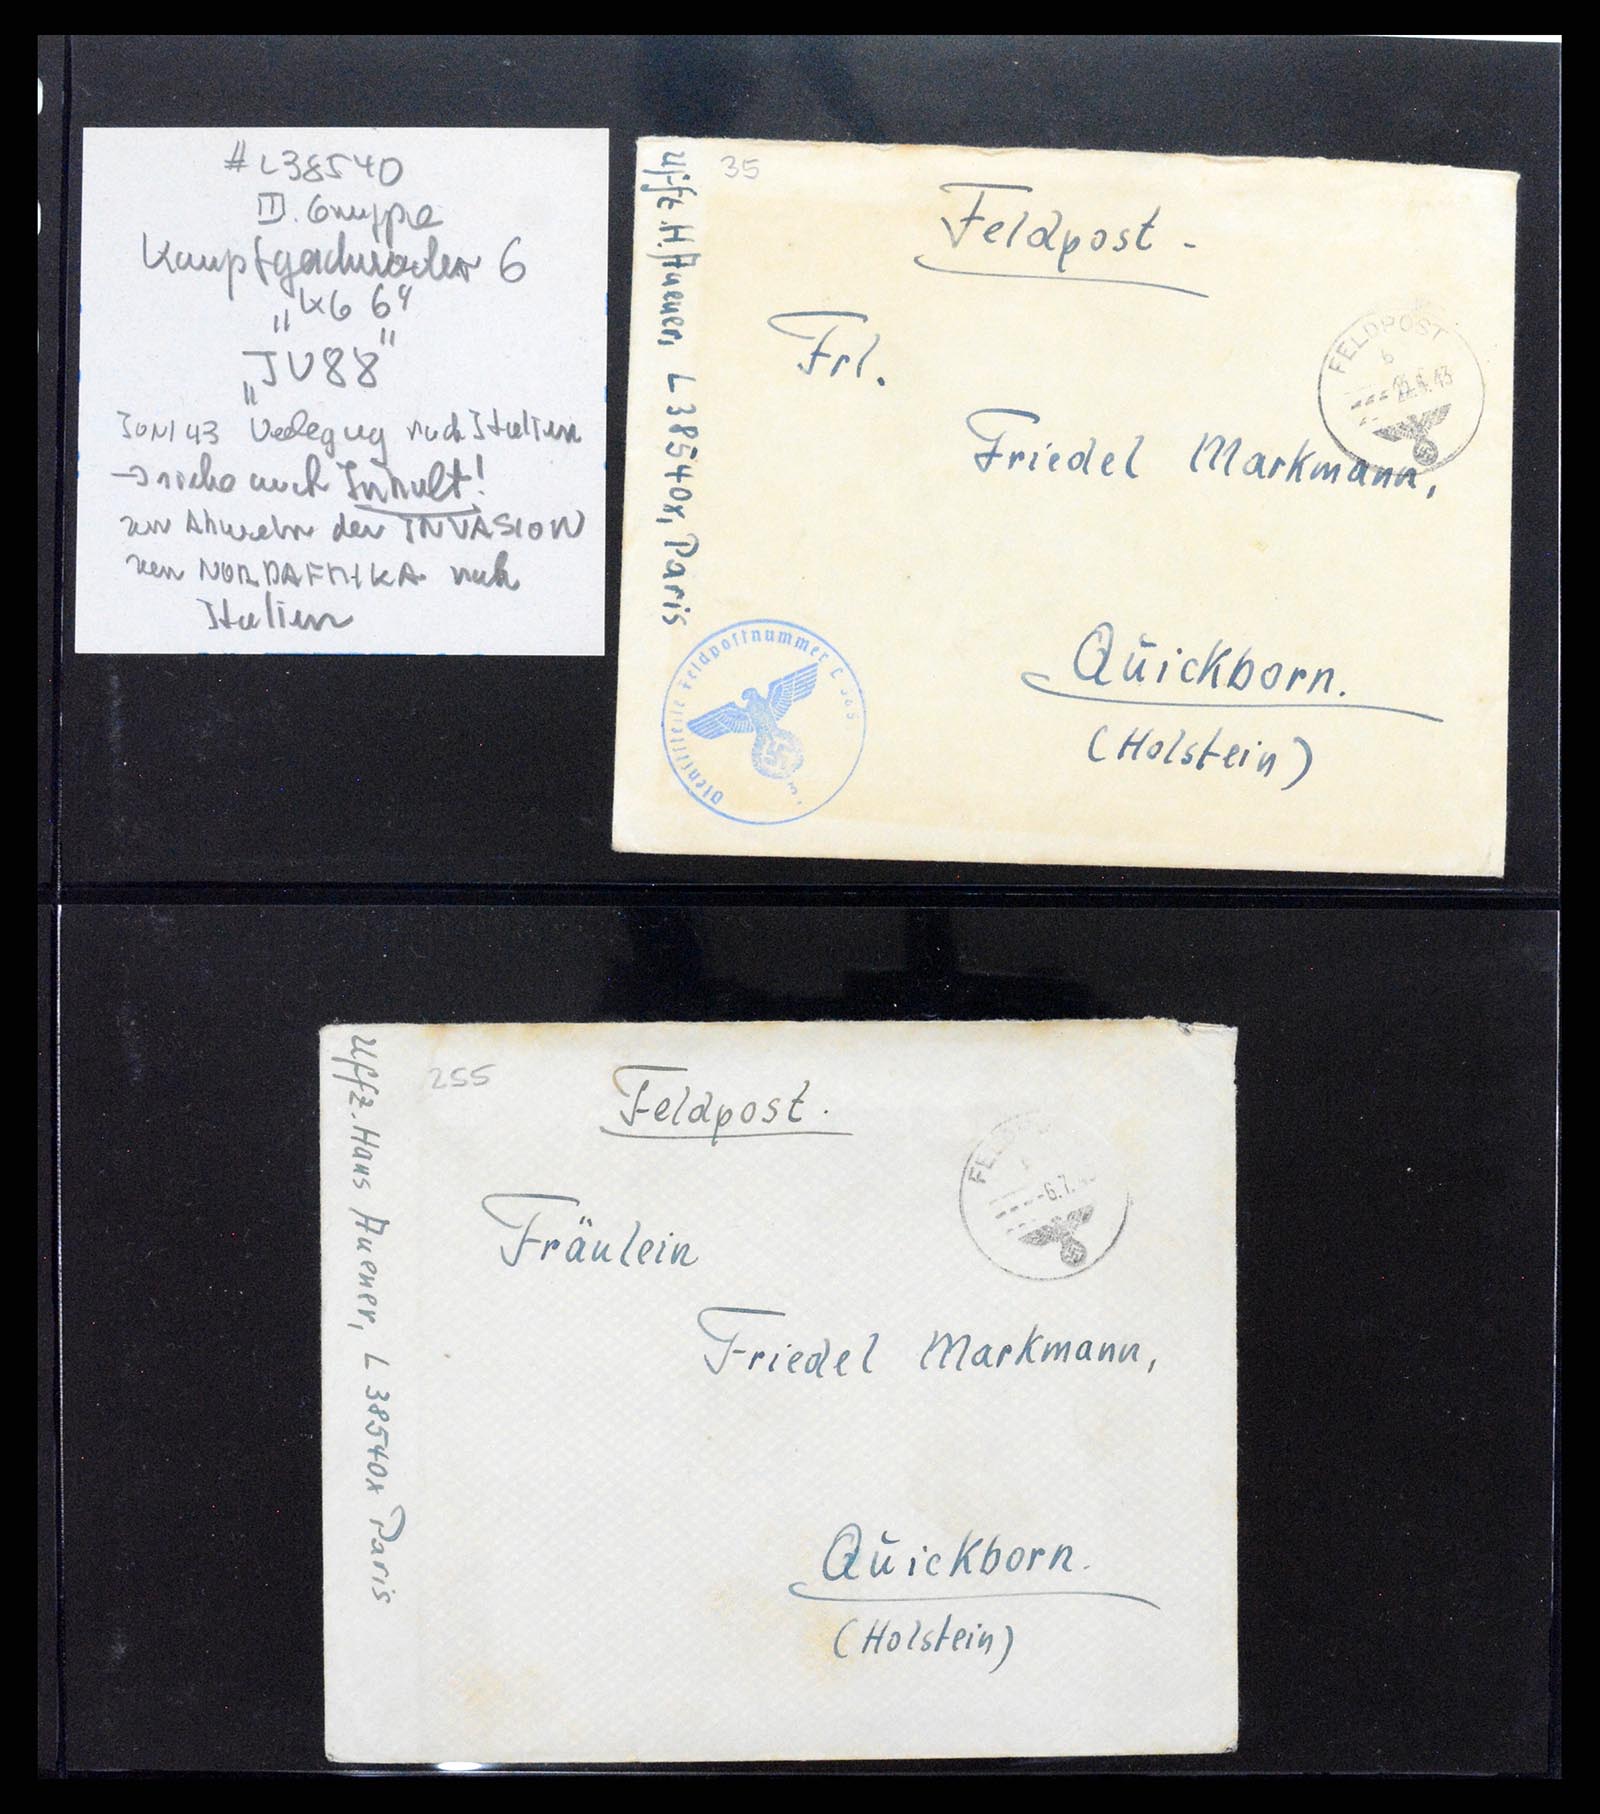 # L38540
III. Gruppe
Kampfgeschwader 6
„KG 6“
„JU88“
JUNI 43 Verlegung nach Italien
→ siehe auch Inhalt!
zur Abwehr der INVASION
von NORDAFRIKA nach
Italien
35
Uffz. H. Auener, L 38540x, Paris
Feldpost -
FELDPOST
b
22.6.43
Frl.
Friedel Markmann,
Quickborn.
(Holstein)
Dienststelle Feldpostnummer L
255
Uffz. Hans Auener, L 38540x Paris
Feldpost.
-6.7.
Fräulein
Friedel Markmann,
Quickborn.
(Holstein)